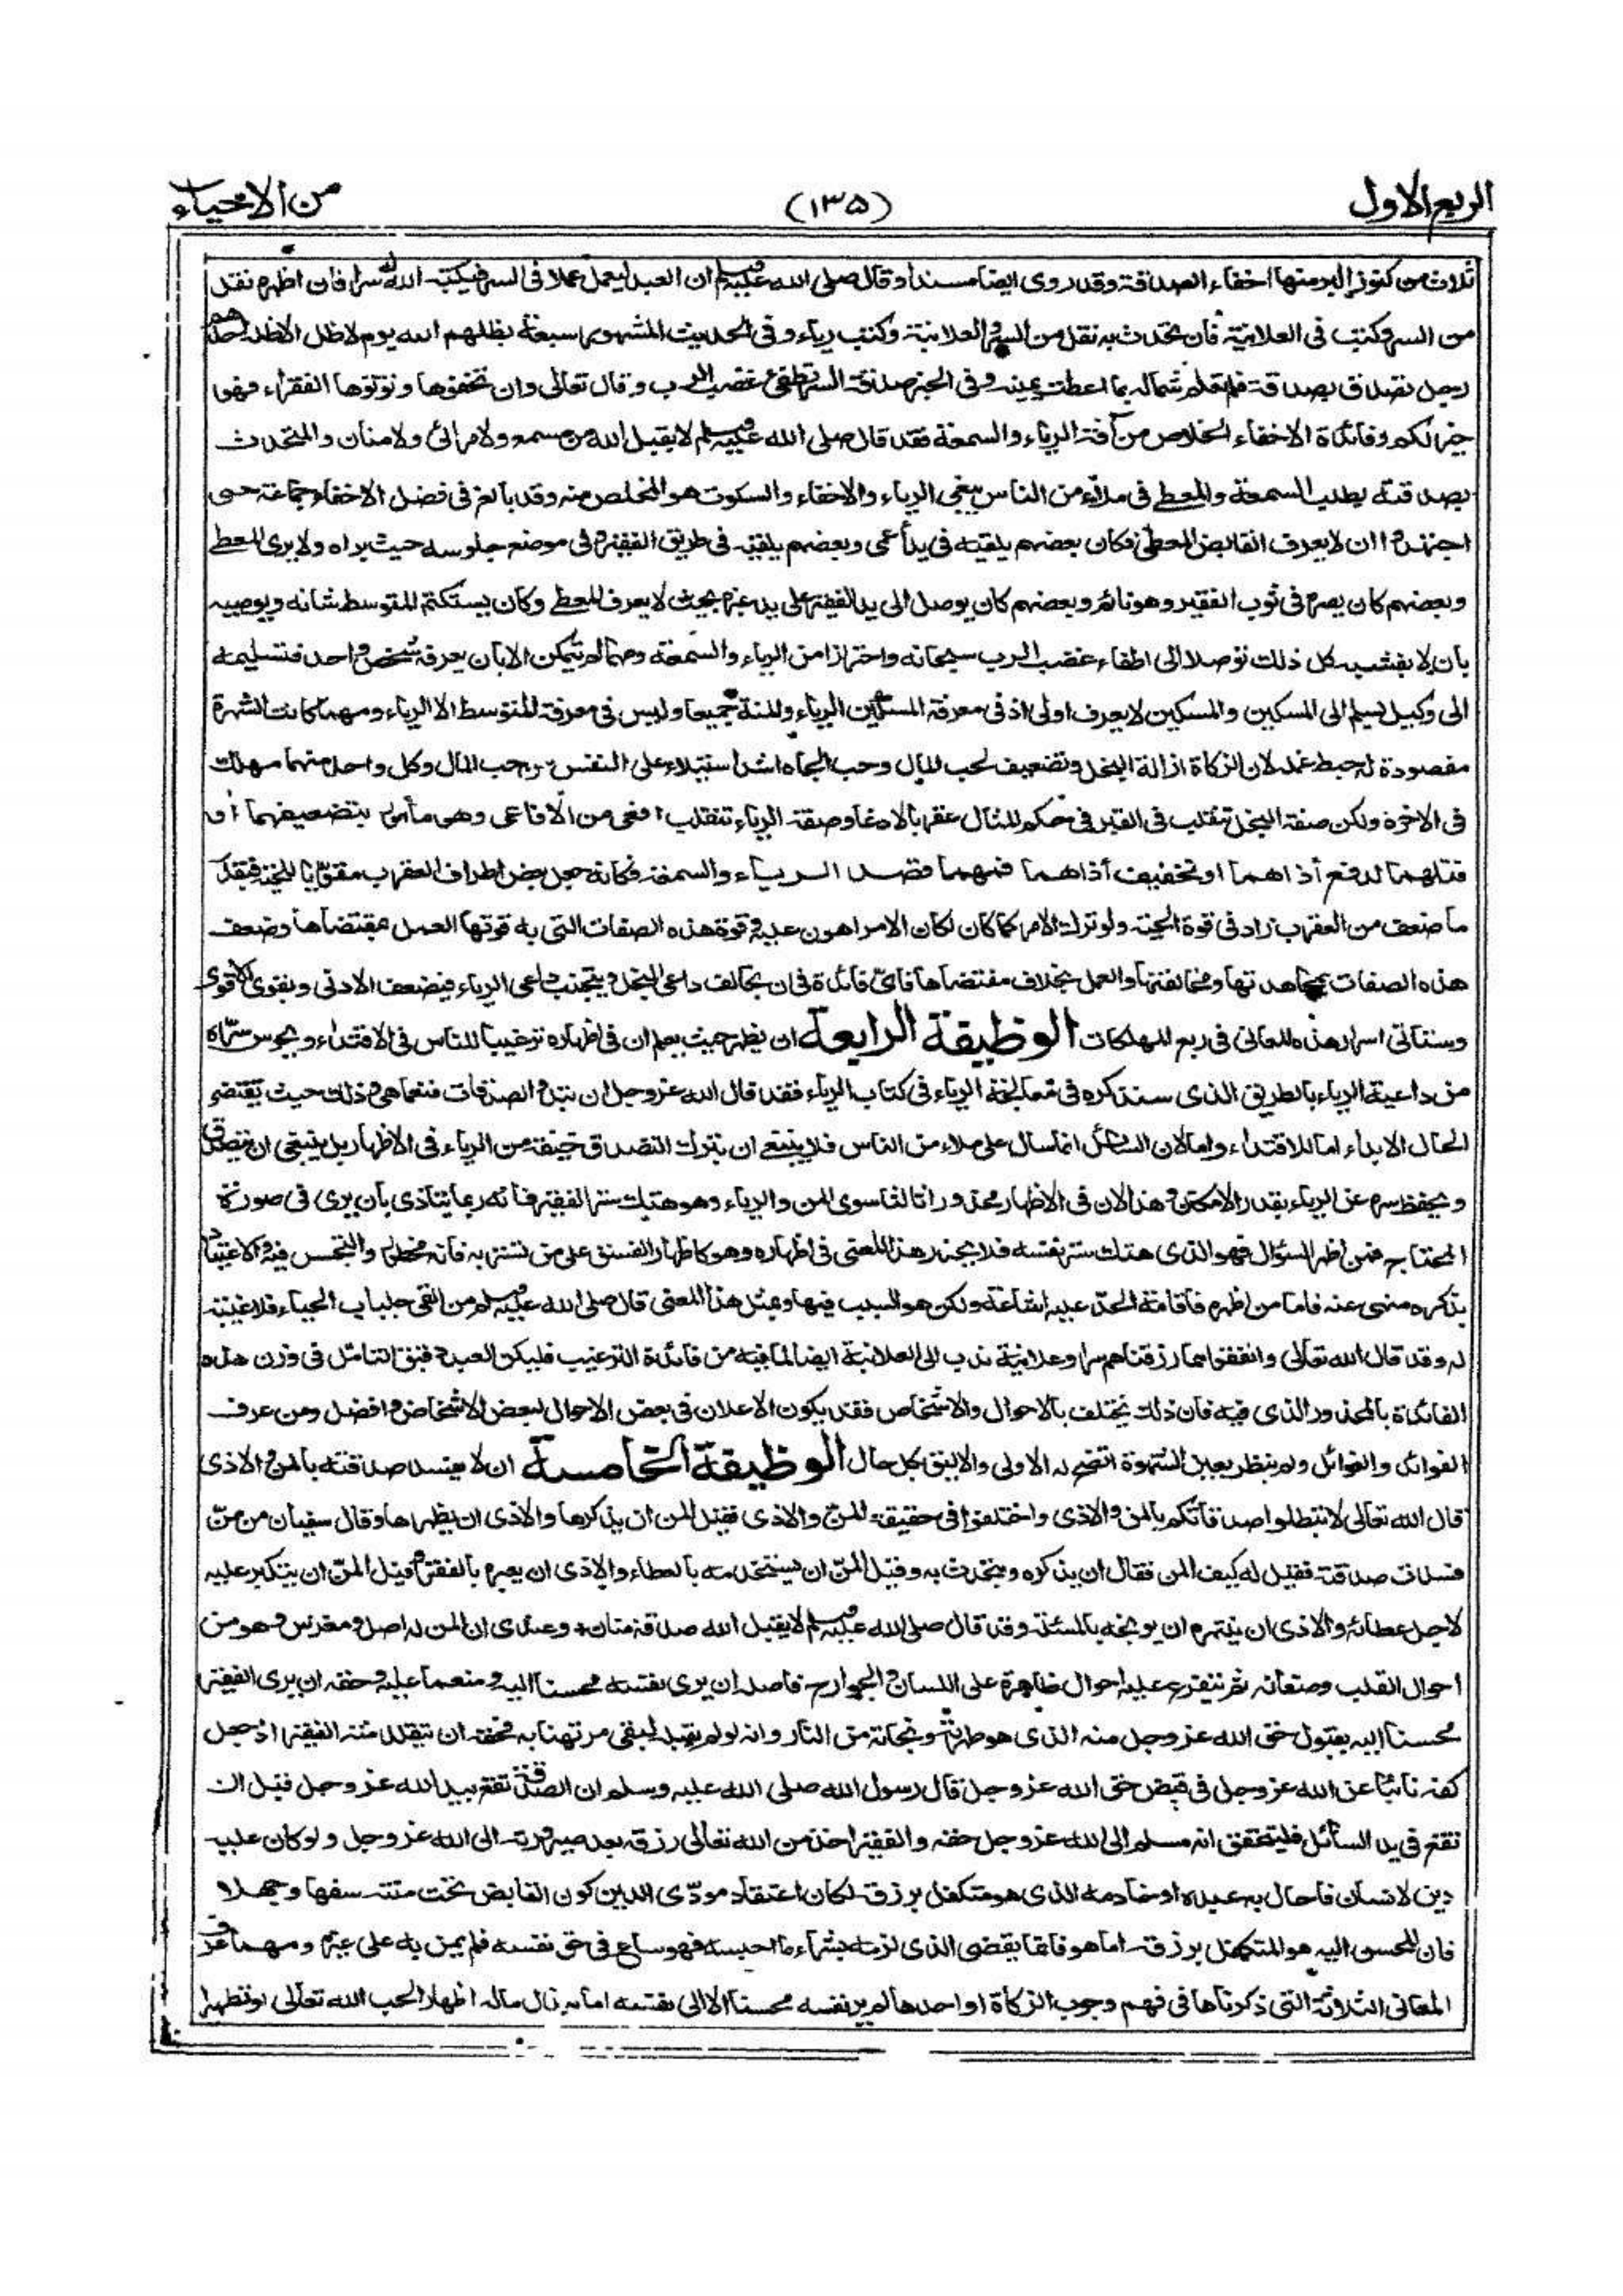 الربع الاول
(١٣٥)
من الاحياء
ثلاث من كنوز البر منها اخفاء الصدقة وقد روى ايضا مسندا وقال صلى الله عليه وسلم ان العبد ليعمل عملا فى السر فيكتبه الله له سرا فان اظهره نقل
من السر وكتب فى العلانية فان تحدث به نقل من السر والعلانية وكتب رياء وفى الحديث المشهور سبعة يظلهم الله يوم لا ظل الا ظله احدهم
رجل تصدق بصدقة فلم تعلم شماله بما اعطت يمينه وفى الخبر صدقة السر تطفئ غضب الرب وقال تعالى وان تخفوها وتؤتوها الفقراء فهو
خير لكم وفائدة الاخفاء الخلاص من آفة الرياء والسمعة فقد قال صلى الله عليه وسلم لا يقبل الله من مسمع ولا مرائ ولا منان والمتحدث
بصدقته يطلب السمعة والمعطى فى ملاء من الناس يبغى الرياء والاخفاء والسكوت هو المخلص منه وقد بالغ فى فضل الاخفاء جماعة حتى
اجتهدوا ان لا يعرف القابض المعطى فكان بعضهم يلقيه فى يد أعمى وبعضهم يلقيه فى طريق الفقير وفى موضع جلوسه حيث يراه ولا يرى المعطى
وبعضهم كان يصره فى ثوب الفقير وهو نائم وبعضهم كان يوصل الى يد الفقير على يد غيره بحيث لا يعرف المعطى وكان يستكتم المتوسط شانه ويوصيه
بان لا يفشيه كل ذلك توصلا الى اطفاء غضب الرب سبحانه واحترازا من الرياء والسمعة ومهما لم يتمكن الا بان يعرفه شخص واحد فتسليمه
الى وكيل ليسلم الى المسكين والمسكين لا يعرف اولى اذ فى معرفة المسكين الرياء والمنة جميعا وليس فى معرفة المتوسط الا الرياء ومهما كانت الشهرة
مقصودة له حبط عمله لان الزكاة ازالة البخل وتضعيف لحب المال وحب الجاه اشد استيلاء على النفس من حب المال وكل واحد منهما مهلك
فى الاخرة ولكن صفة البخل تنقلب فى القبر فى حكم المثال عقربا لادغا وصفة الرياء تنقلب افعى من الافاعى وهى مأمور بتضعيفهما أو
قتلهما لدفع أذاهما او تخفيف أذاهما فمهما قصد الرياء والسمعة فكانه جعل بعض اطراف العقرب مقويا للحية فبقدر
ما ضعف من العقرب زاد فى قوة الحية ولو ترك الامر كما كان لكان الامر اهون عليه وقوة هذه الصفات التى به قوتها العمل بمقتضاها وضعف
هذه الصفات بمجاهدتها ومخالفتها والعمل بخلاف مقتضاها فاى فائدة فى ان يخالف داعى البخل ويتجنب داعى الرياء فيضعف الادنى ويقوى الاقوى
وستاتى اسرار هذه المعانى فى ربع المهلكات الوظيفة الرابعة ان يظهر حيث يعلم ان فى اظهاره ترغيبا للناس فى الاقتداء ويحرس سره
من داعية الرياء بالطريق الذى سنذكره فى معالجة الرياء فى كتاب الرياء فقد قال الله عز وجل ان تبدوا الصدقات فنعما هى وذلك حيث يقتضى
الحال الابداء اما للاقتداء واما لان السائل انما سال على ملاء من الناس فلا ينبغى ان يترك التصدق خيفة من الرياء فى الاظهار بل ينبغى ان يتصدق
ويحفظ سره عن الرياء بقدر الامكان وهذا لان فى الاظهار محذورا ثالثا سوى المن والرياء وهو هتك ستر الفقير فانه ربما يتاذى بان يرى فى صورة
المحتاج فمن اظهر السؤال فهو الذى هتك ستر نفسه فلا يحذر هذا المعنى فى اظهاره وهو كاظهار الفسق على من تستر به فانه محظور والتجسس فيه والاعتياد
بذكره منهى عنه فاما من اظهره فاقامة الحد عليه اشاعة ولكن هو السبب فيها وبمثل هذا المعنى قال صلى الله عليه وسلم من القى جلباب الحياء فلا غيبة
له وقد قال الله تعالى وانفقوا مما رزقناهم سرا وعلانية ندب الى العلانية ايضا لما فيه من فائدة الترغيب فليكن العبد دقيق التامل فى وزن هذه
الفائدة بالمحذور الذى فيه فان ذلك يختلف بالاحوال والاشخاص فقد يكون الاعلان فى بعض الاحوال لبعض الاشخاص افضل ومن عرف
الفوائد والغوائل ولم ينظر بعين الشهوة اتضح له الاولى والاليق بكل حال الوظيفة الخامسة ان لا يفسد صدقته بالمن والاذى
قال الله تعالى لا تبطلوا صدقاتكم بالمن والاذى واختلفوا فى حقيقة المن والاذى فقيل المن ان يذكرها والاذى ان يظهرها وقال سفيان من من
فسدت صدقته فقيل له كيف المن فقال ان يذكره ويتحدث به وقيل المن ان يستخدمه بالعطاء والاذى ان يعيره بالفقر وقيل المن ان يتكبر عليه
لاجل عطائه والاذى ان ينتهره او يوبخه بالمسئلة وقد قال صلى الله عليه وسلم لا يقبل الله صدقة منان وعندى ان المن له اصل ومغرس وهو من
أحوال القلب وصفاته ثم يتفرع عليه احوال ظاهرة على اللسان والجوارح فاصله ان يرى نفسه محسنا اليه ومنعما عليه وحقه ان يرى الفقير
محسنا اليه بقبول حق الله عز وجل منه الذى هو طهرته ونجاته من النار وانه لو لم يقبله لبقى مرتهنا به فحقه ان يتقلد منة الفقير اذ جعل
كفه نائبا عن الله عز وجل فى قبض حق الله عز وجل قال رسول الله صلى الله عليه وسلم ان الصدقة تقع بيد الله عز وجل قبل ان
تقع فى يد السائل فليتحقق انه مسلم الى الله عز وجل حقه والفقير اخذ من الله تعالى رزقه بعد صيرورته الى الله عز وجل ولو كان عليه
دين لانسان فاحال به عبده او خادمه الذى هو متكفل برزقه لكان اعتقاد مودى الدين كون القابض تحت منته سفها وجهلا
فان المحسن اليه هو المتكفل برزقه اما هو فانما يقضى الذى لزمه بشراء ما احبه فهو ساع فى حق نفسه فلم يمن به على غيره ومهما عرف
المعانى الثلاثة التى ذكرناها فى فهم وجوب الزكاة او احدها لم ير نفسه محسنا الا الى نفسه اما ببذل ماله اظهارا لحب الله تعالى او تطهيرا